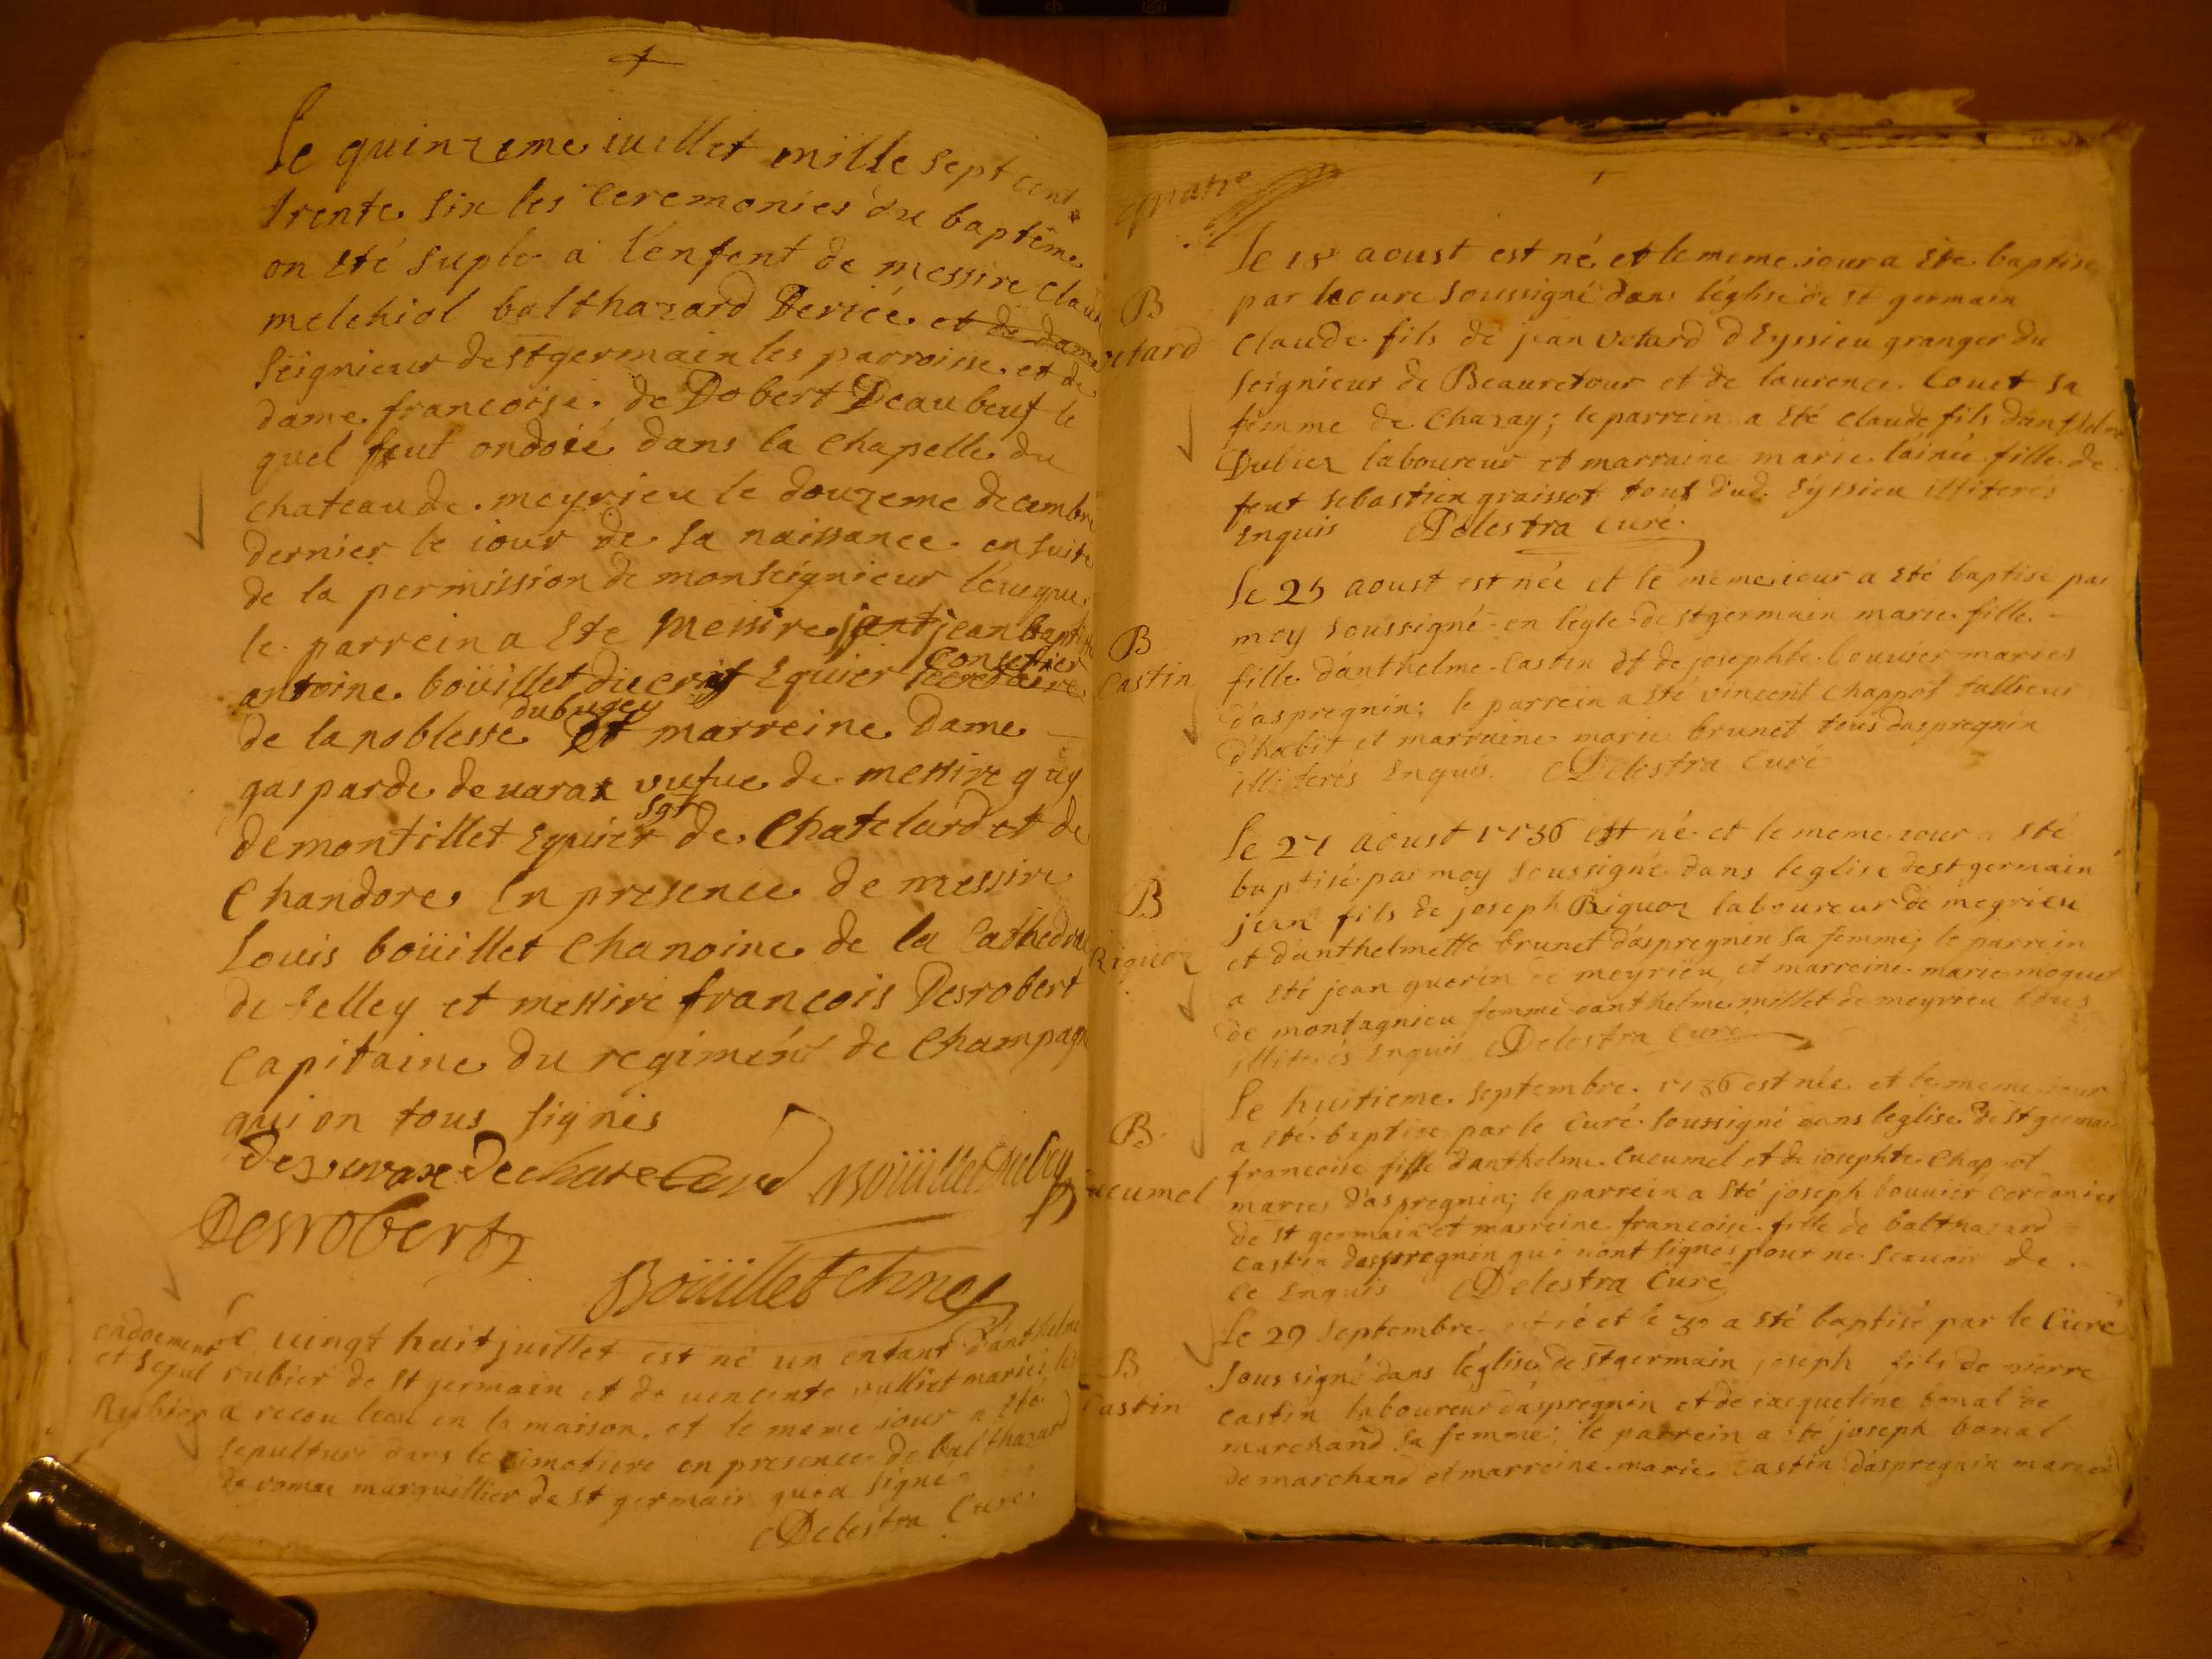 Le quinzeme iuillet mille sept cent
trente six les ceremonies du baptême
on été suple a l'enfent de messire claude
melchiol balthazard Dericé et de dame
seignieur de st germain les parroisse et de
dame francoise de Dobert Deaubeuf le
quel feut ondoié dans la chapelle du
chateau de meyrieu le douzeme decembre
dernier le iour de sa naissance ensuite
de la permission de monseignieur l'eueque
le parrein a été messire jean baptiste
conseilier
antoine boüillet ducrest Equier secretaire
du bugey
de la noblesse et marreine dame
gasparde de uarax vufue de messire guy
sgr
de montillet Equier de Chatelard et de
Chandore En presence de messire
Louis boüillet Chanoine de la Cathedral
de belley et messire francois Desrobert
Capitaine du regiment de Champagne
qui on tous signés
de chatelard
Desrobert
Boüillet chne
ondoement
et sepul
Rubier
Le uingt huit juillet est né un enfant d'anthelme
rubier de st germain et de uencente vulliet mariés le
a receu leau en la maison, et le meme iour a été
sepulturé dans le cimetiere en presence de balthazard
de romas marguillier de st germain qui a signé
Delestra Curé
quatre
B
vetard
Le 18 aoust est né et le meme iour a été baptise
par le cure soussigné dans l'église de st germain
Claude fils de jean vetard d Eyssieu granger du
seignieur de Beauretour et de laurence Couet sa
femme de Chazay; le parrein a été Claude fils d'anthelme
Dubiez laboureur et marraine marie lainée fille de
feut sebastien graissot tous dud. Eyssieu illiterés
Enquis Delestra curé
B
Castin
Le 25 aoust est née et le meme iour a été baptisé par
moy soussigné en légle de st germain marie fille
fille d'anthelme Castin et de josephte bouvier mariés
d'aspregnin; le parrein a été vincent chappot tallieur
d'habit et marraine marie brunet tous daspregnin
illiterés Enquis Delestra Curé
B
Riguoz
Le 27 aoust 1736 est né et le meme iour a été
baptisé par moy soussigné dans leglise de st germain
jean fils de joseph Riguoz laboureur de meyrieu
et d'anthelmette brunet d'aspregnin sa femme; le parrein
a été jean guerin de meyrieu et marreine marie moguet
de montagnieu femme danthelme millet de meyrieu tous
illiterés Enquis Delestra Curé
B
Cucumel
Le huitieme septembre 1736 est née et le meme iour
a été baptise par le Curé soussigné dans leglise de st germain
francoise fille danthelme Cucumel et de iosephte Chappot
maries d'aspregnin; le parrein a été joseph bouvier cordonier
de st germain et marreine francoise fille de balthazard
Castin daspregnin qui nont signés pour ne scauoir de
ce Enquis Delestra Curé
B
Castin
Le 29 septembre est né et le 30 a été baptisé par le Curé
soussigné dans l'église de st germain joseph fils de pierre
castin laboureur d'aspregnin et de iacqueline bonal de
marchand sa femme; le parrein a été joseph bonal
de marchand et marreine marie Castin d'aspregnin